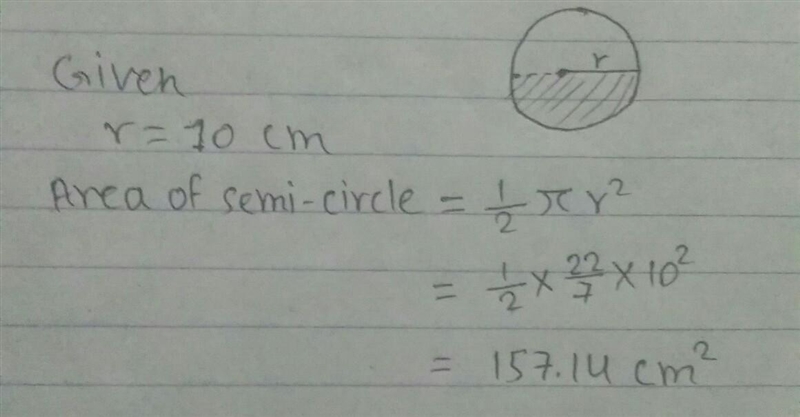 r
Given
r = 10 cm
Area of semi-circle = 1/2 π r²
= 1/2 × 22/7 × 10²
= 157.14 cm²